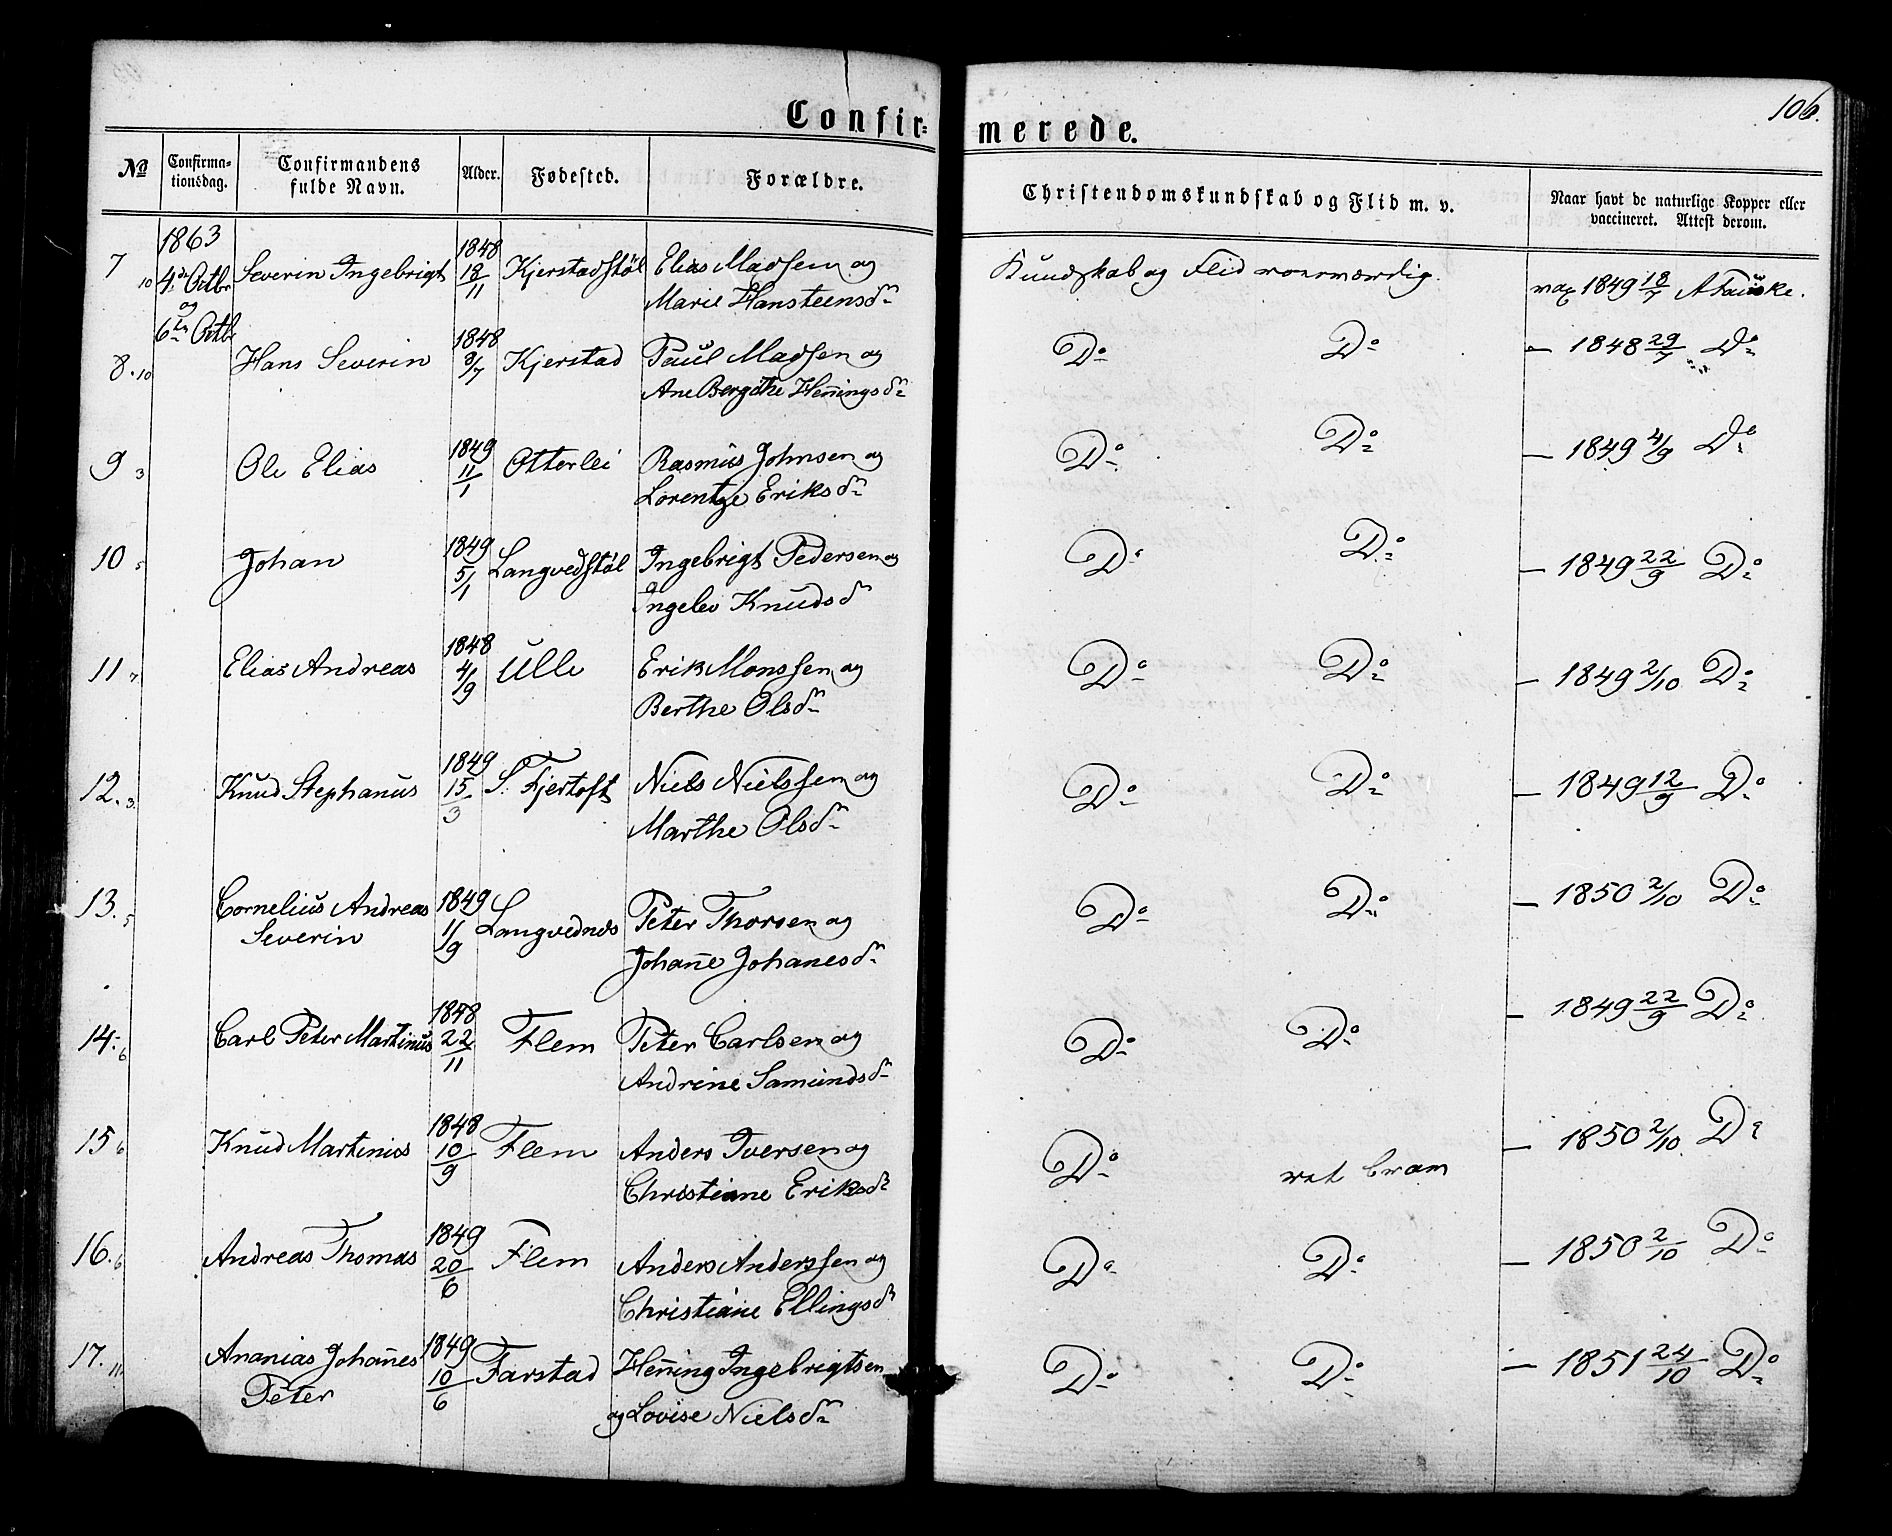 Confir=
merede.
106.
No
Confirma-
tionsdag.
Confirmandens
fulde Navn.
Alder.
Fødested.
Forældre.
Christendomskundskab og Flid m. v.
Naar havt de naturlige Kopper eller
vaccineret. Attest derom.
1863
7 10 4de Octbr Severin Ingebrigt 1848 18/11 Kjerstadstøl Elias Madsen og
Marie Hansteensdr
Kundskab og Flid roesværdig. vax 1849 18/7 A Fauske.
og
6te Octb
8. 10 Hans Severin 1848 9/7 Kjerstad Paul Madsen og
Ane Bergithe Heñingsdr
Do Do — 1848 29/7 Do
9 3 Ole Elias 1849 11/1 Otterlei Rasmus Johnsen og
Lorentze Eriksdr
Do Do — 1849 4/9 Do
10 5 Johan 1849 5/1 Langvedstøl Ingebrigt Pedersen og
Ingelev Knudsdr
Do Do — 1849 22/9 Do
11 7 Elias Andreas 1848 4/9 Ulle Erik Monssen og
Berthe Olsdr
Do Do — 1849 2/10 Do
12. 3 Knud Stephanus 1849 15/3 S. Fjertoft Niels Nielssen og
Marthe Olsdr
Do Do — 1849 12/9 Do
13. 5 Cornelius Andreas 1849 1/9 Langvednes Peter Thorsen og
Severin
Johañe Johanesdr
Do Do — 1850 2/10 Do
14. 6 Carl Peter Martinus 1848 22/11 Flem Peter Carlsen og
Andrine Samundsdr
Do Do — 1849 22/9 Do
15 6 Knud Martinius 1848 10/9 Flem Anders Iversen og
Christiane Eriksdr
Do ret bram — 1850 2/10 Do
16. 6 Andreas Thomas 1849 20/6 Flem Anders Anderssen og
Christiane Ellingsdr
Do Do — 1850 2/10 Do
17. 11 Ananias Johañes 1849 10/6 Farstad Heñing Ingebrigtsen
Peter
og Lovise Nielsdr
Do Do — 1851 24/10 Do